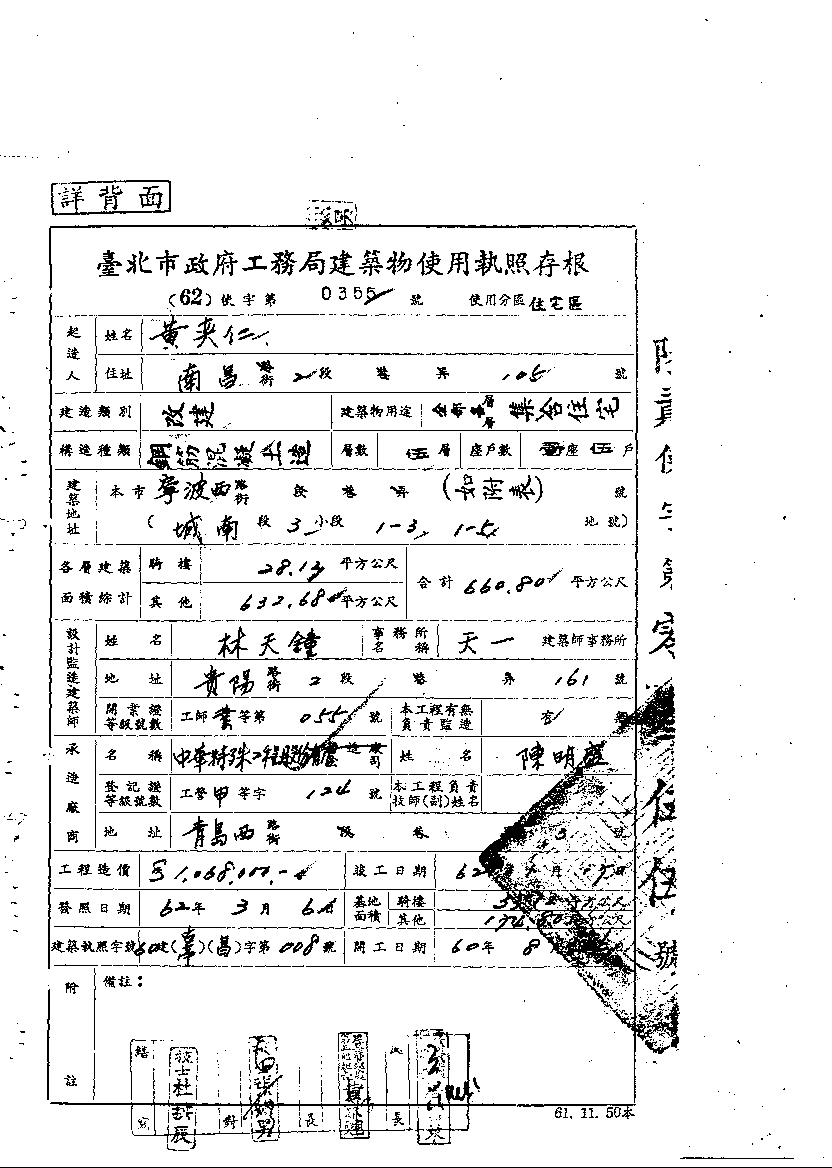 詳背面
臺北市政府工務局建築物使用執照存根
(62)使字第 0355 號 使用分區 住宅區
起造人 姓名 黃奕仁
住址 南昌路街 2段 巷 弄 105 號
建造類別 改建 建築物用途 全部 層層 集合住宅
構造種類 鋼筋混凝土造 層數 伍層 座戶數 座伍戶
建築地址 本市 寧波西路街 段 巷 弄 (如附表) 號
(城南段 3小段 1-3, 1-5 地號)
各層建築面積綜計 騎樓 28.12 平方公尺 合計 660.80 平方公尺
其他 632.68 平方公尺
設計監造建築師 姓名 林天鐘 事務所名稱 天一 建築師事務所
地址 貴陽路街 2段 巷 弄 161 號
開業證等級號數 工師 等第 055 號 本工程有無負責監造 有
承造廠商 名稱 中華特殊工程股份有 姓名 陳明盛
登記證等級號數 工營甲等字 124 號 本工程負責技師(副)姓名
地址 青島西路街 段 巷 3 號
工程造價 1,068,000.- 竣工日期 62
發照日期 62年 3月 6 基地面積 騎樓 平方公尺
其他 平方公尺
建築執照字號 60建( )(昌)字第 008 號 開工日期 60年 8
附註 備註:
繕寫 對 長 長
61.11.50本